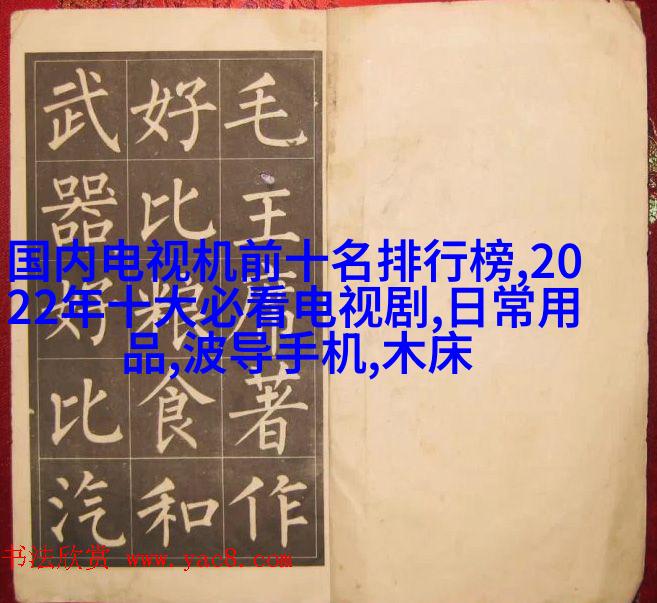 毛主席著作
好比粮食和
武器好比汽
国内电视机前十名排行榜,20
22年十大必看电视剧,日常用
品,波导手机,木床
书法欣赏 www.yac8.com